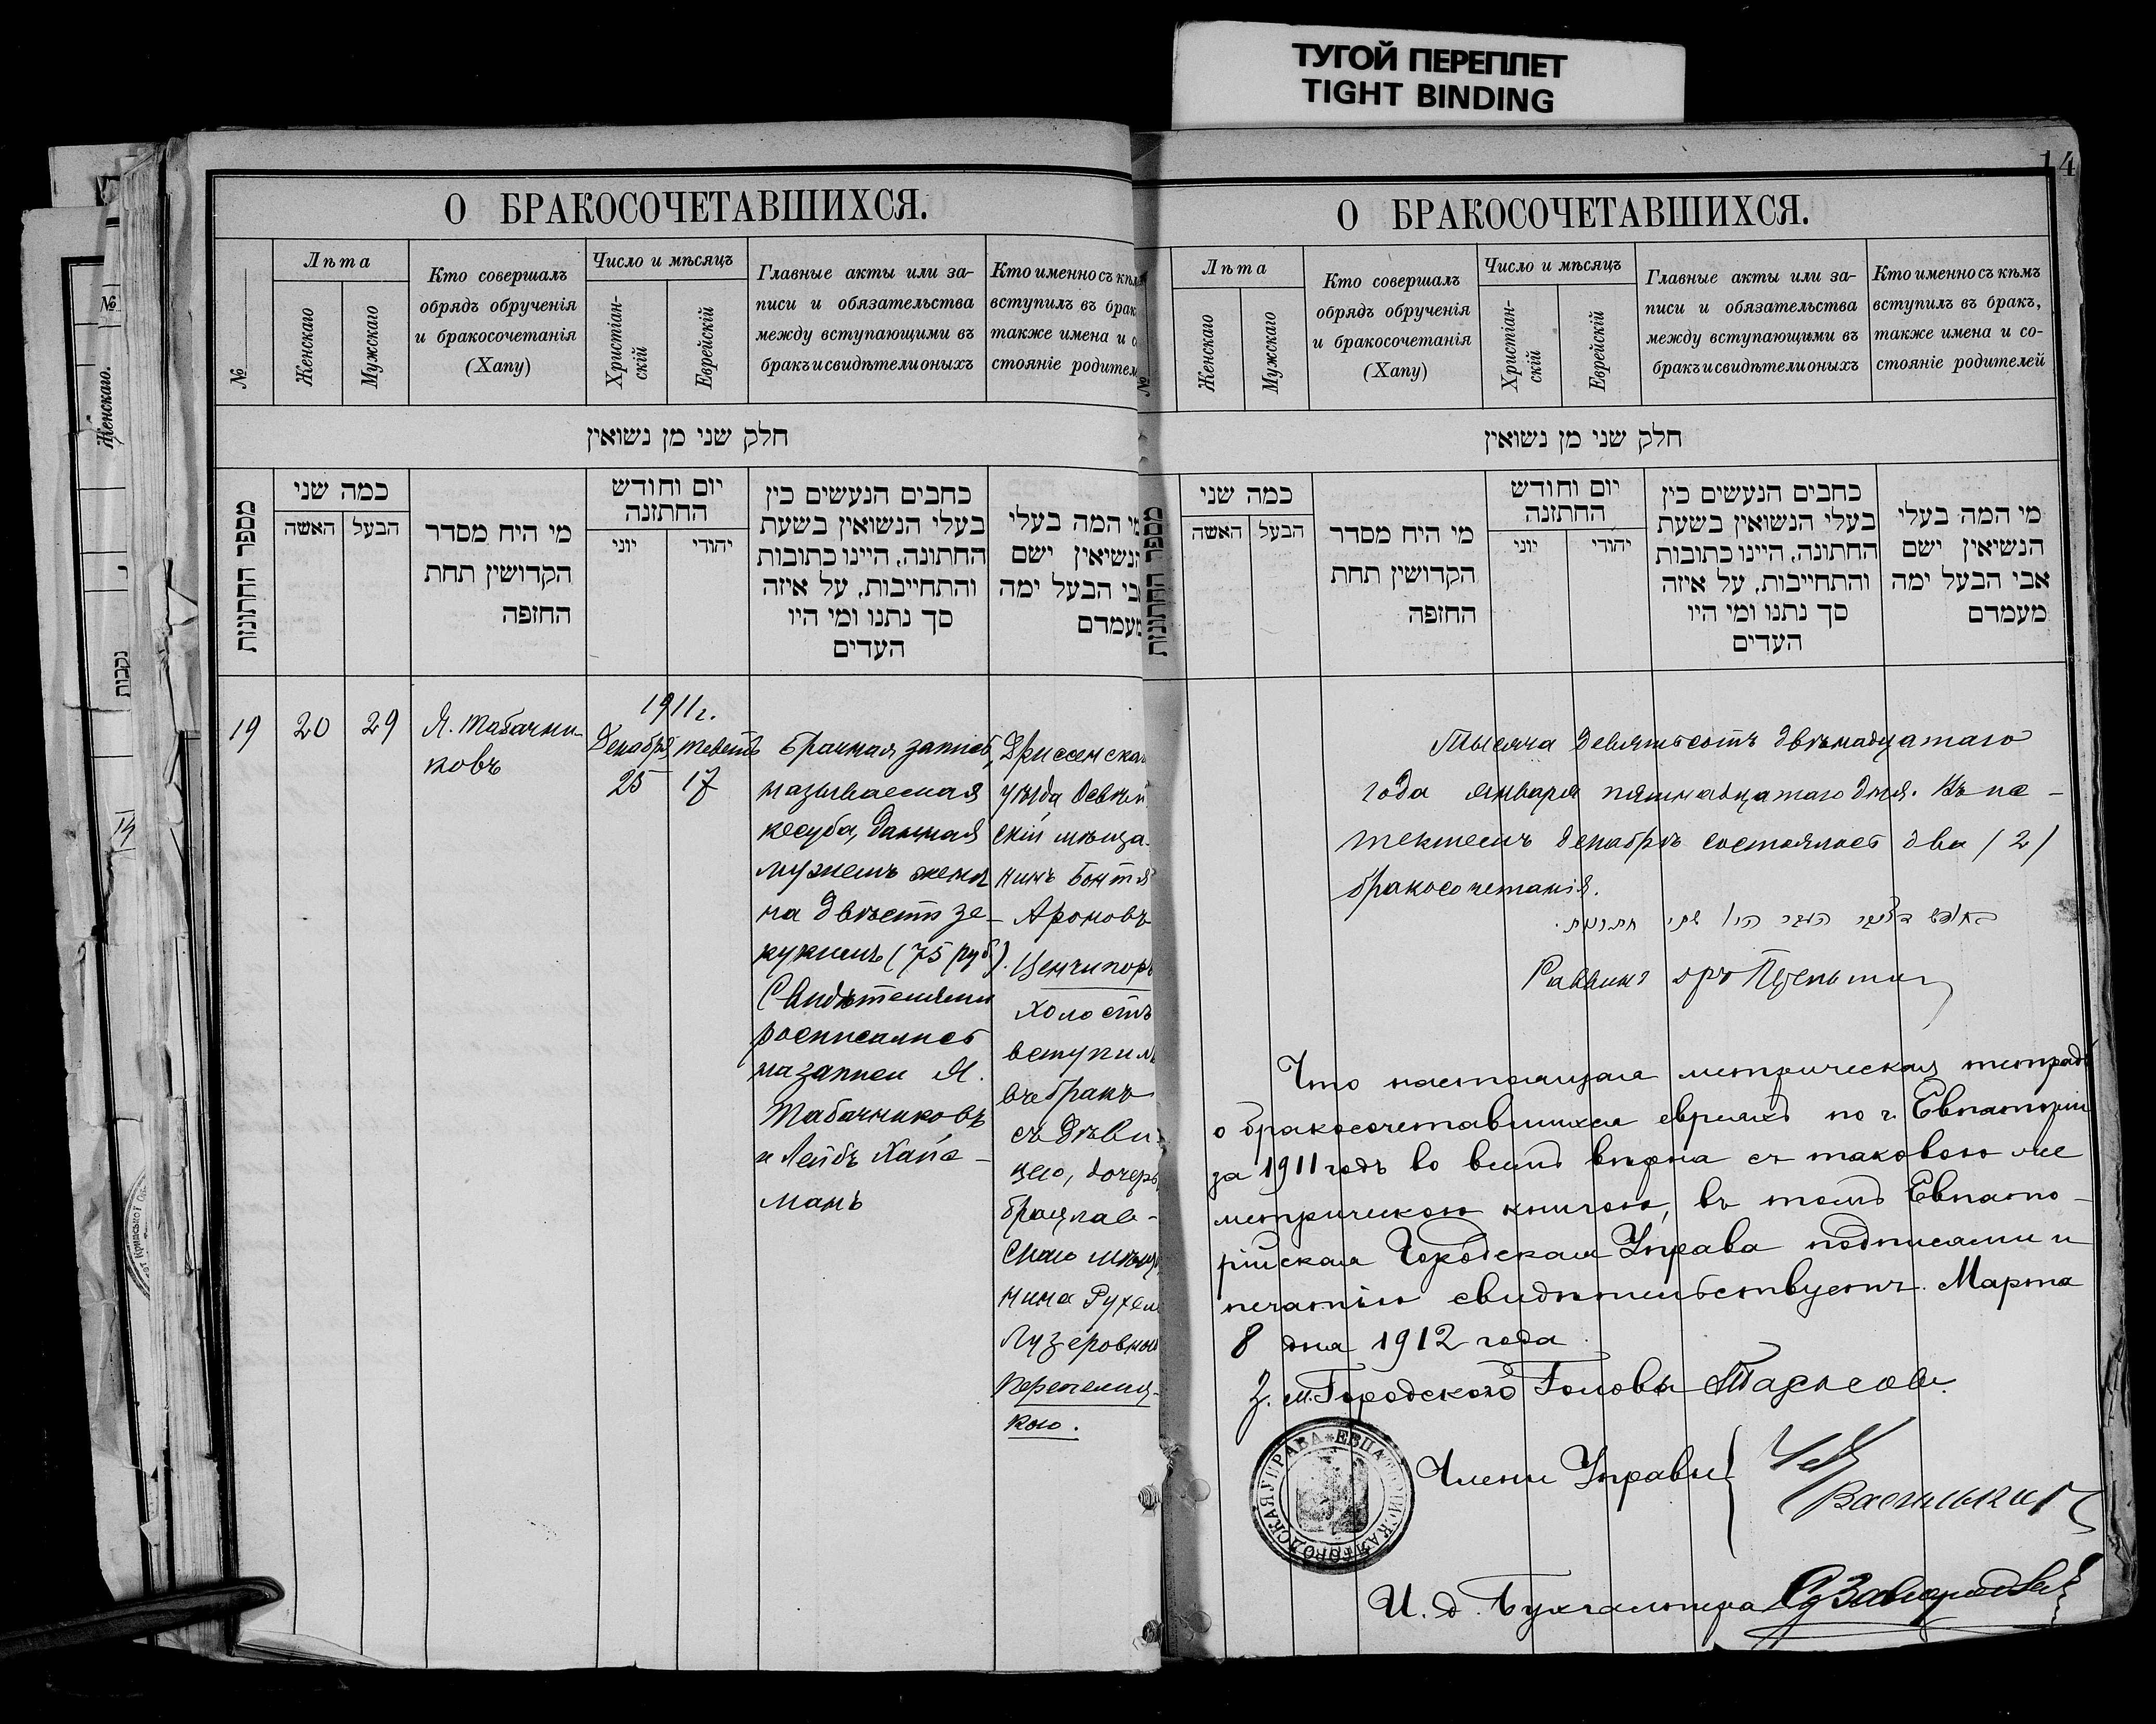 ТУГОЙ ПЕРЕПЛЕТ
TIGHT BINDING
О БРАКОСОЧЕТАВШИХСЯ.
№
Лѣта
Женскаго
Мужскаго
Кто совершалъ
обрядъ обрученія
и бракосочетанія
(Хапу)
Число и мѣсяцъ
Христіан-
скій
Еврейскій
Главные акты или за-
писи и обязательства
между вступающими въ
бракъ и свидѣтели оныхъ
Кто именно съ кѣм
вступилъ въ брак
также имена и с
стояніе родител
חלק שני מן נשואין
מספר החתונות
כמה שני
האשה
הבעל
מי היח מסדר
הקדושין תחת
החזפה
יום וחודש
החתזנה
יוני
יהודי
כחבים הנעשים כין
בעלי הנשואין בשעת
החתונה, היינו כתובות
והתחייבות, על איזה
סך נתנו ומי היו
העדים
מי המה בעלי
הנשיאין ישם
אבי הבעל ימה
מעמדם
19
20
29
Я. Табачни-
ковъ
1911 г.
Декабря Теветъ
25 17
Брачная запись,
называемая
кесуба, данная
мужемъ женѣ
на двѣсти зе-
кукимъ (75 руб).
Свидѣтелями
росписались
на записи Я.
Табачниковъ
и Лейбъ Хай-
манъ
Дриссенска
уѣзда
скій мѣща-
нинъ
Ароновъ
Ценципоръ
холостъ
вступилъ
въ бракъ
съ дѣви-
цею, дочерь
брацлав-
скаго мѣща
нина Рухел
Лузеровною
Перепелиц-
кою.
14
О БРАКОСОЧЕТАВШИХСЯ.
№
Лѣта
Женскаго
Мужскаго
Кто совершалъ
обрядъ обрученія
и бракосочетанія
(Хапу)
Число и мѣсяцъ
Христіан-
скій
Еврейскій
Главные акты или за-
писи и обязательства
между вступающими въ
бракъ и свидѣтели оныхъ
Кто именно съ кѣмъ
вступилъ въ бракъ,
также имена и со-
стояніе родителей
חלק שני מן נשואין
מספר החתונות
כמה שני
האשה
הבעל
מי היח מסדר
הקדושין תחת
החזפה
יום וחודש
החתזנה
יוני
יהודי
כחבים הנעשים כין
בעלי הנשואין בשעת
החתונה, היינו כתובות
והתחייבות, על איזה
סך נתנו ומי היו
העדים
מי המה בעלי
הנשיאין ישם
אבי הבעל ימה
מעמדם
Тысяча девятьсотъ двѣнадцатаго
года января пятнадцатаго дня. Въ ис-
текшемъ декабрѣ состоялось два (2)
бракосочетанія.
Раввинъ
Что настоящая метрическая тетрадь
о бракосочетавшихся евреяхъ по г. Евпаторіи
за 1911 годъ во всемъ вѣрна съ таковою же
метрическою книгою, въ томъ Евпато-
рійская Городская Управа подписями и
печатію свидѣтельствуетъ. Марта
8 дня 1912 года.
З. м. Городского Головы
Члены Управы
И. д. Бухгалтера
ЕВПАТОРІЙСКАЯ ГОРОДСКАЯ УПРАВА
№
Женскаго.
נקבות